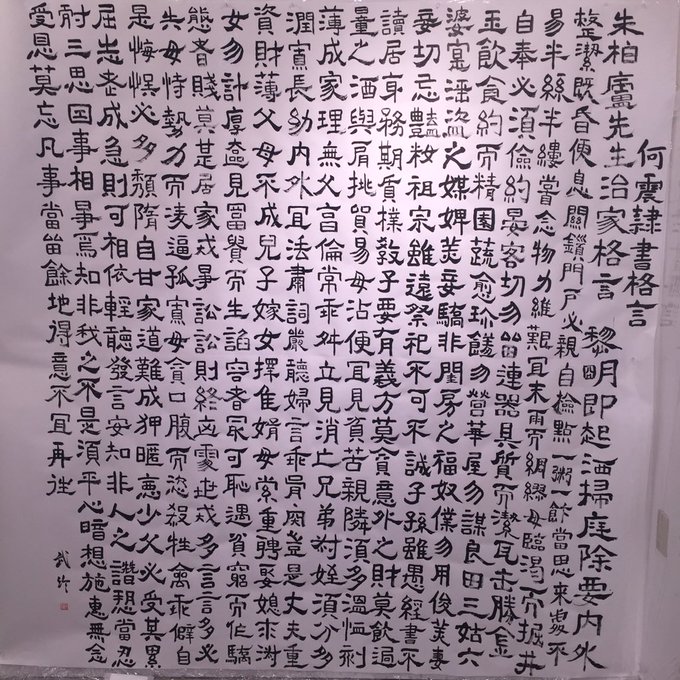 何震隸書格言
朱柏廬先生治家格言 黎明即起洒掃庭除要內外
整潔既昏便息關鎖門戶必親自檢點一粥一飯當思來處不
易半絲半縷嘗念物力維艱宜未雨而綢繆毋臨渴而掘井
自奉必須儉約宴客切勿留連器具質而潔瓦缶勝金
玉飲食約而精園蔬愈珍饈勿營華屋勿謀良田三姑六
婆寔淫盜之媒婢美妾驕非閨房之福奴僕勿用俊美妻
妾切忌艷粧祖宗雖遠祭祀不可不誠子孫雖愚經書不
讀居身務期質樸教子要有義方莫貪意外之財莫飲過
量之酒與肩挑貿易毋沾便宜見貧苦親隣須多溫恤刻
薄成家理無父亯倫常乖舛立見消亡兄弟叔姪須分多
潤寡長幼內外宜法肅詞嚴聽婦言乖骨肉豈是丈夫重
資財薄父母不成兒子嫁女擇佳婿毋索重聘娶媳求淑
女勿計厚奩見富貴而生諂容者最可恥遇貧窮而作驕
態者賤莫甚居家戒爭訟訟則終凶處世戒多言言多必
失毋恃勢力而凌逼孤寡毋貪口腹而恣殺牲禽乖僻自
是悔悮必多頹隋自甘家道難成狎暱惡少父必受其累
屈志老成急則可相依輕聽發言安知非人之譖愬當忍
耐三思因事相爭焉知非我之不是須平心暗想施惠無念
受恩莫忘凡事當留餘地得意不宜再往